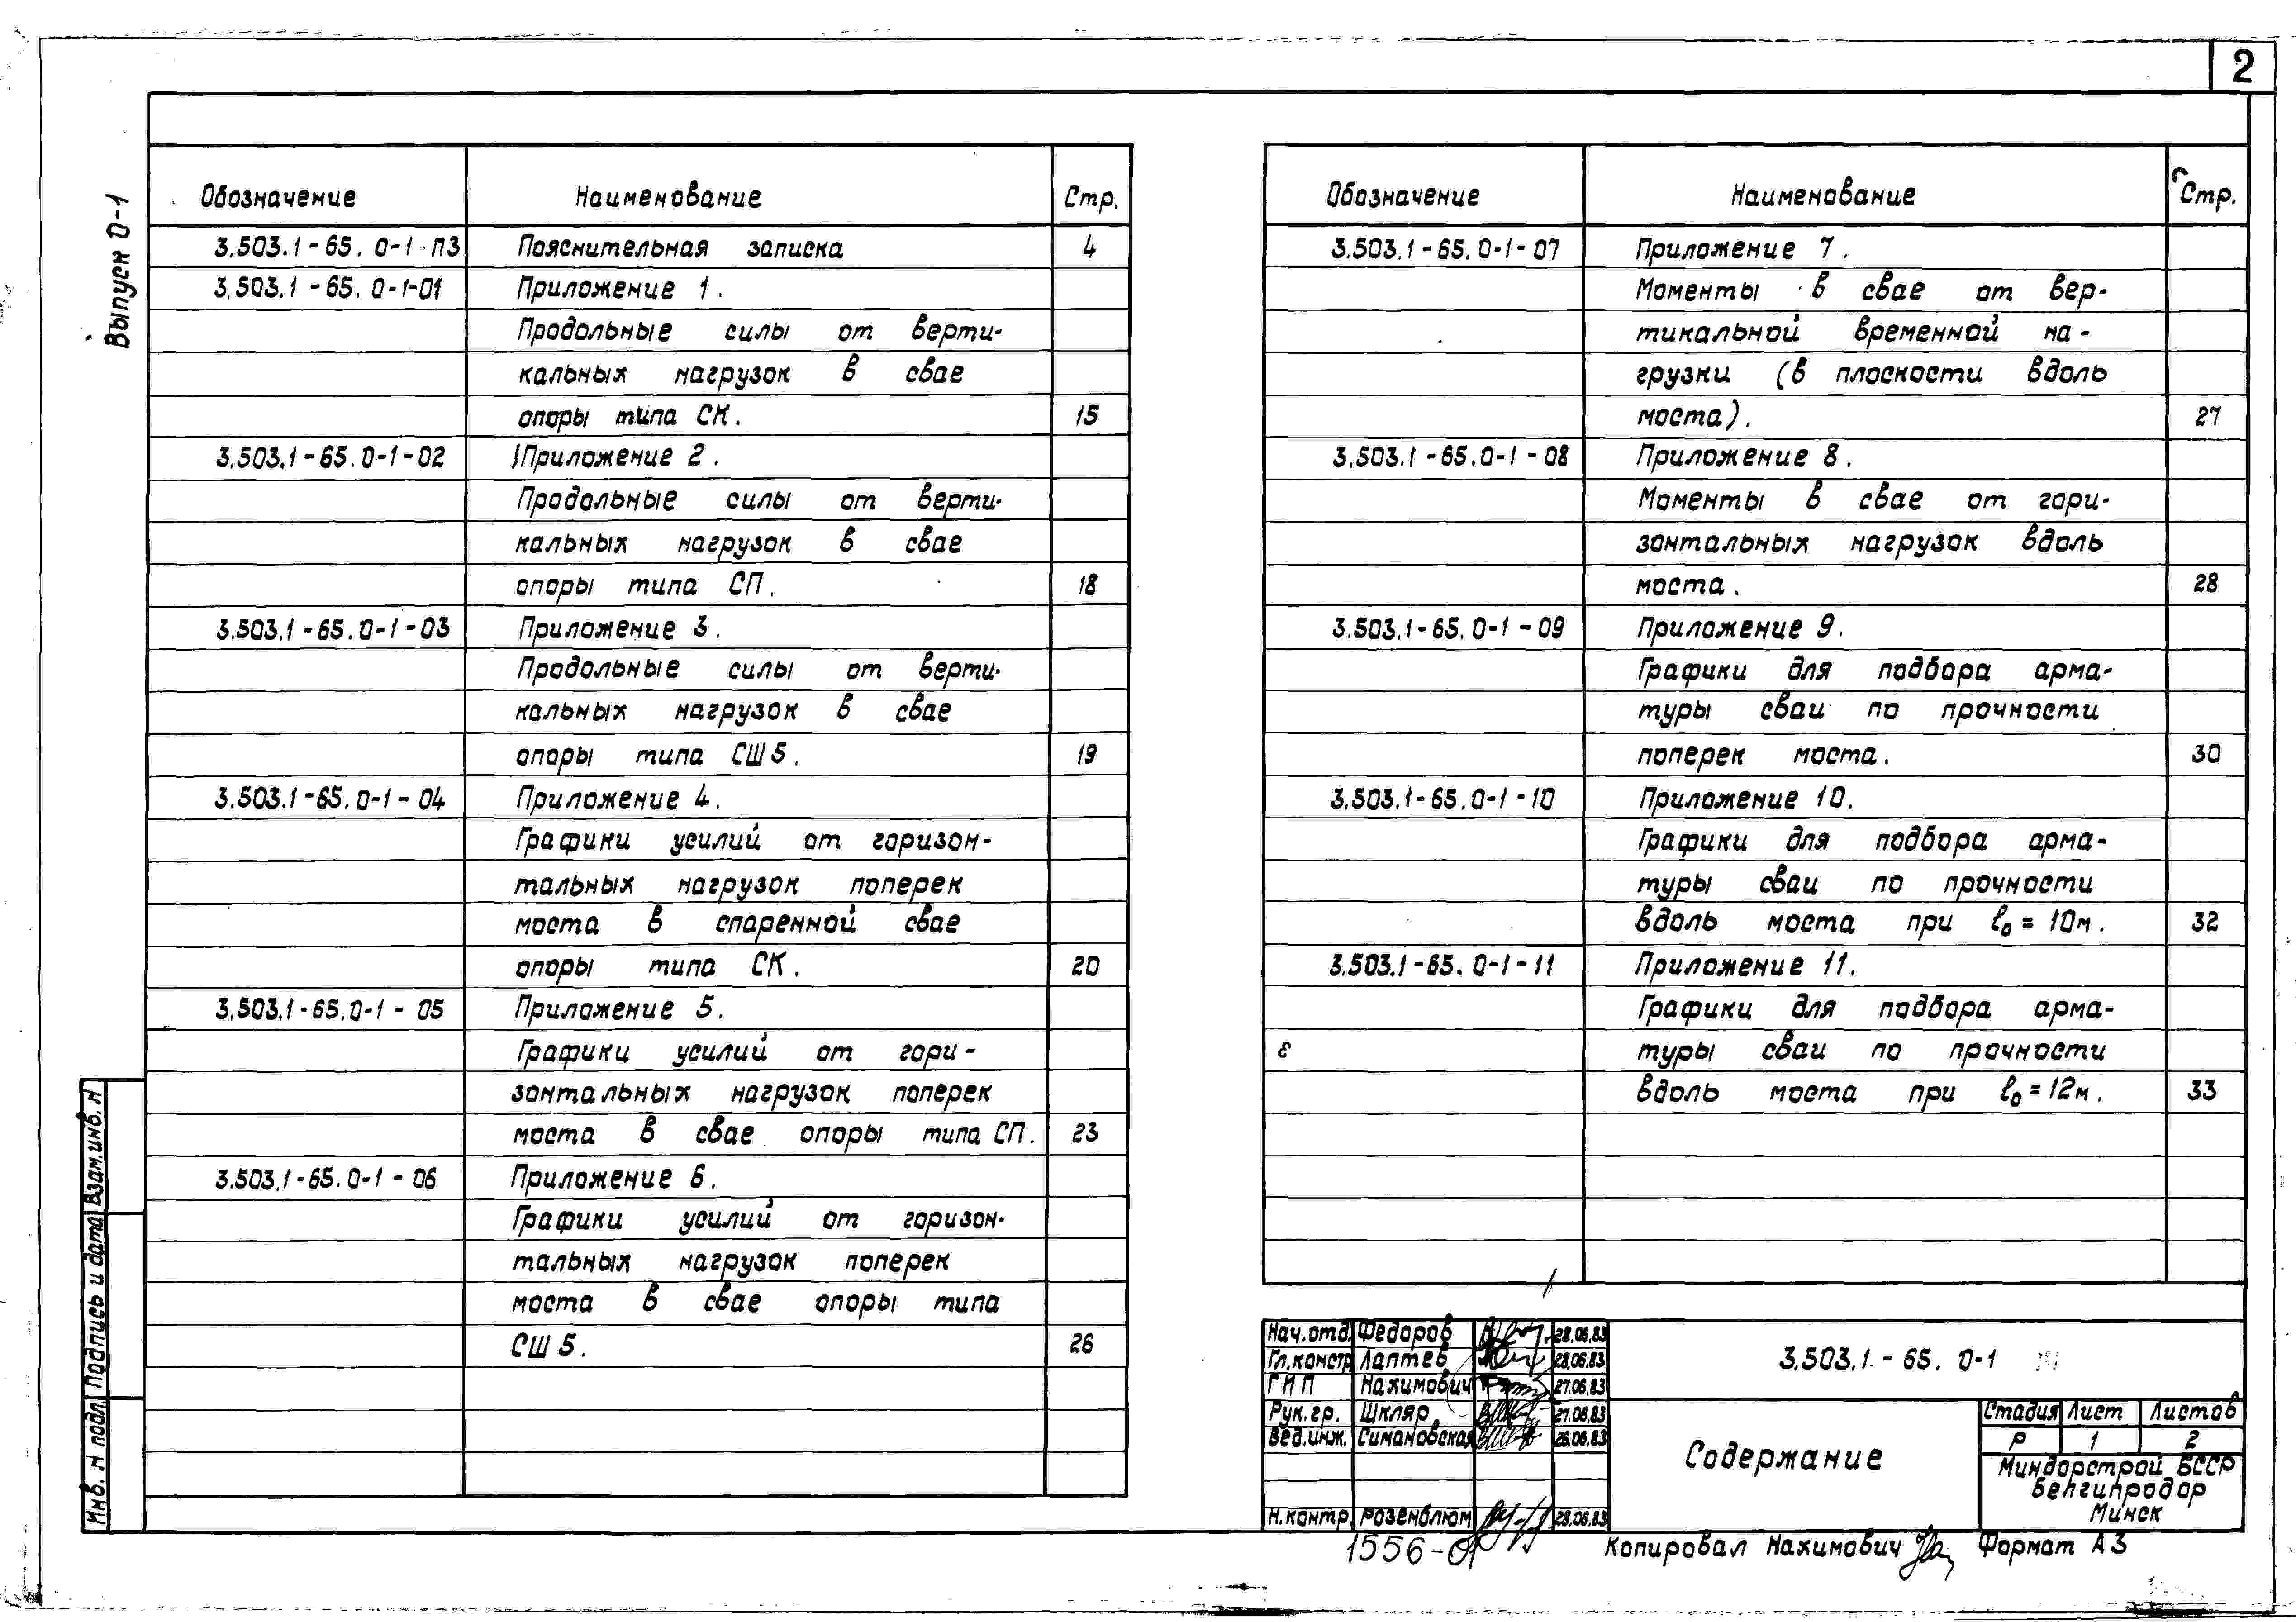 2
Выпуск 0-1
Обозначение Наименование Стр.
3.503.1-65. 0-1-ПЗ Пояснительная записка 4
3.503.1-65. 0-1-01 Приложение 1.
Продольные силы от верти-
кальных нагрузок в свае
опоры типа СК. 15
3.503.1-65.0-1-02 Приложение 2.
Продольные силы от верти-
кальных нагрузок в свае
опоры типа СП. 18
3.503.1-65.0-1-03 Приложение 3.
Продольные силы от верти-
кальных нагрузок в свае
опоры типа СШ5. 19
3.503.1-65.0-1-04 Приложение 4.
Графики усилий от горизон-
тальных нагрузок поперек
моста в спаренной свае
опоры типа СК. 20
3.503.1-65.0-1-05 Приложение 5.
Графики усилий от гори-
зонтальных нагрузок поперек
моста в свае опоры типа СП. 23
3.503.1-65.0-1-06 Приложение 6.
Графики усилий от горизон-
тальных нагрузок поперек
моста в свае опоры типа
СШ5. 26
Обозначение Наименование Стр.
3.503.1-65.0-1-07 Приложение 7.
Моменты в свае от вер-
тикальной временной на-
грузки (в плоскости вдоль
моста). 27
3.503.1-65.0-1-08 Приложение 8.
Моменты в свае от гори-
зонтальных нагрузок вдоль
моста. 28
3.503.1-65.0-1-09 Приложение 9.
Графики для подбора арма-
туры сваи по прочности
поперек моста. 30
3.503.1-65.0-1-10 Приложение 10.
Графики для подбора арма-
туры сваи по прочности
вдоль моста при l₀=10м. 32
3.503.1-65.0-1-11 Приложение 11.
Графики для подбора арма-
туры сваи по прочности
вдоль моста при l₀=12м. 33
Взам.инв.N
Подпись и дата
Инв.N подл.
Нач.отд. Федоров 28.06.83
Гл.констр. Лаптев 28.06.83
ГИП Нахимович 27.06.83
Рук.гр. Шкляр 27.06.83
Вед.инж. Симановская 26.06.83
Н.контр. Розенблюм 28.06.83
3.503.1-65. 0-1
Содержание
Стадия Лист Листов
Р 1 2
Миндорстрой БССР
Белгипродор
Минск
1556-01
Копировал Нахимович Формат А3